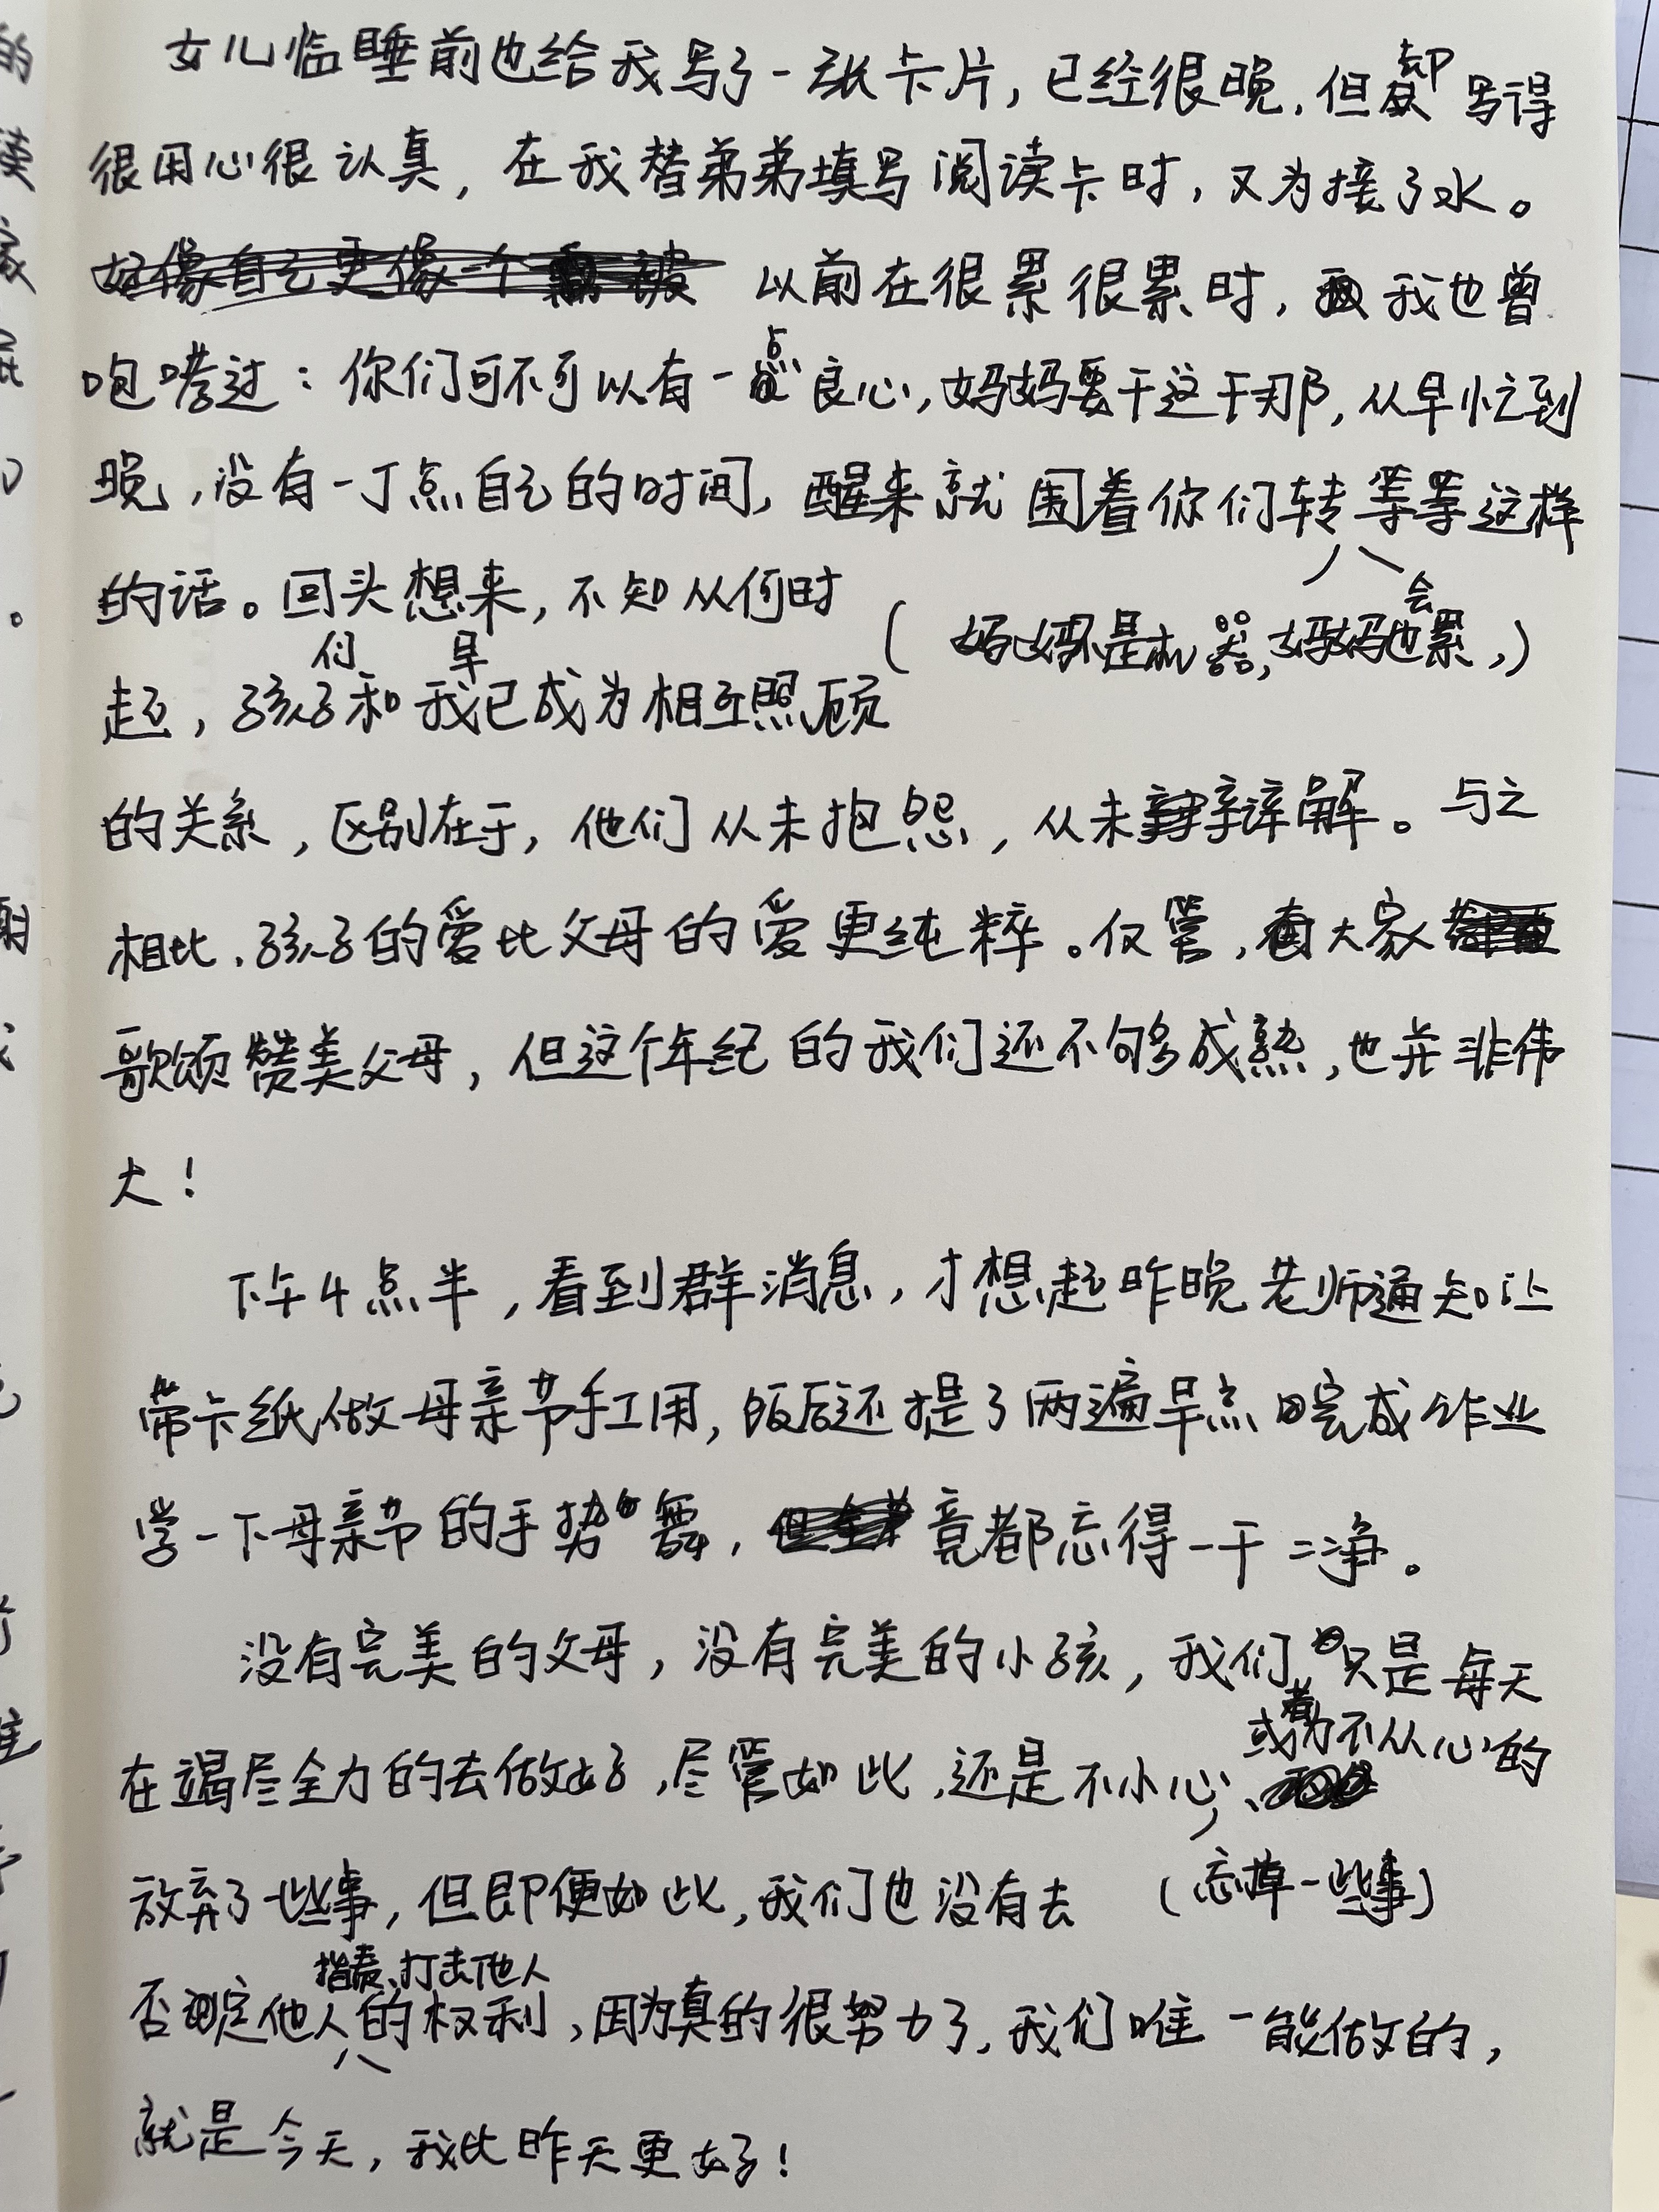 女儿临睡前也给我写了一张卡片，已经很晚，但却写得
很用心很认真，在我替弟弟填写阅读卡时，又为接了水。
好像自己更像一个 被 以前在很累很累时，我也曾
咆哮过：你们可不可以有一点良心，妈妈要干这干那，从早忙到
晚，没有一丁点自己的时间，醒来就围着你们转等等这样
的话。回头想来，不知从何时
（妈妈不是机器，妈妈也会累，）
起，孩子们和我早已成为相互照顾
的关系，区别在于，他们从未抱怨，从未辩解。与之
相比，孩子的爱比父母的爱更纯粹。仅管，大家
歌颂赞美父母，但这个年纪的我们还不够成熟，也并非伟
大！
下午4点半，看到群消息，才想起昨晚老师通知让
带卡纸做母亲节手工用，饭后还提了两遍早点完成作业
学一下母亲节的手势舞，竟都忘得一干二净。
没有完美的父母，没有完美的小孩，我们只是每天
在竭尽全力的去做好，尽管如此，还是不小心、或者力不从心的
放弃了一些事，但即便如此，我们也没有去
（忘掉一些事）
指责、打击他人
否定他人的权利，因为真的很努力了，我们唯一能做的，
就是今天，我比昨天更好！